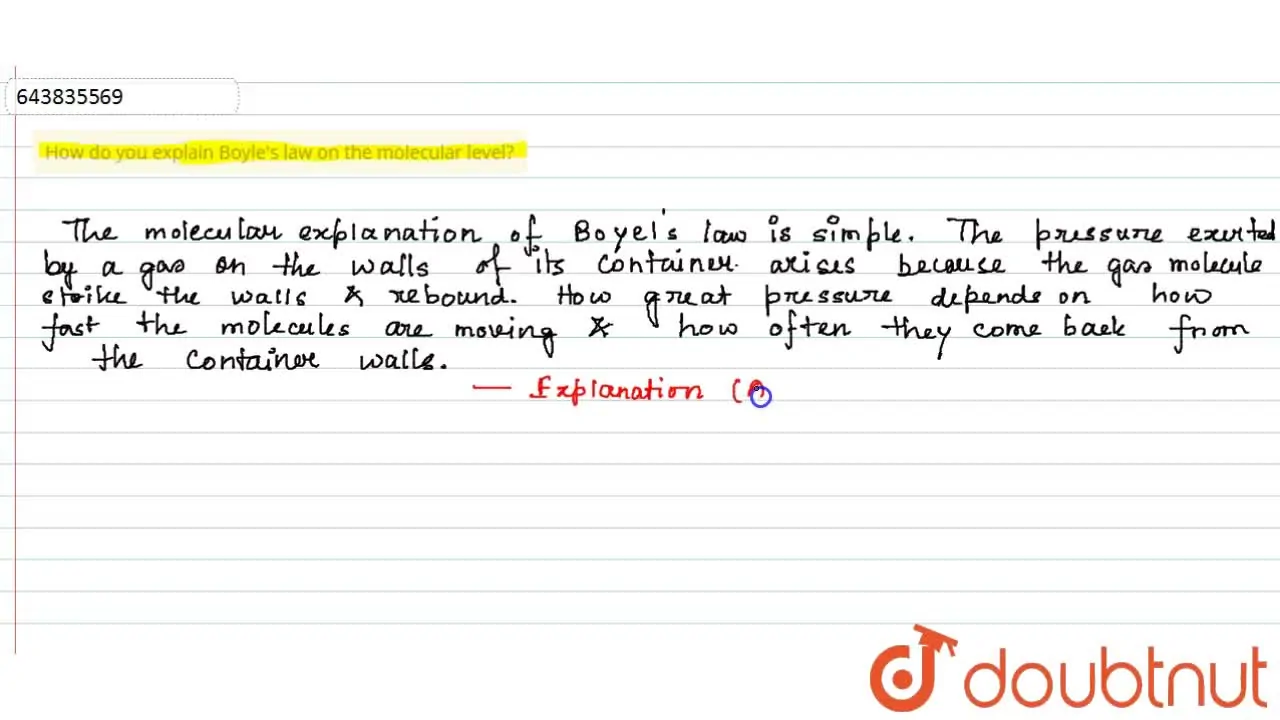 643835569
How do you explain Boyle's law on the molecular level?
The molecular explanation of Boyel's law is simple. The pressure exerted
by a gas on the walls of its container. arises because the gas molecule
strike the walls & rebound. How great pressure depends on how
fast the molecules are moving & how often they come back from
the container walls.
— Explanation (A
doubtnut